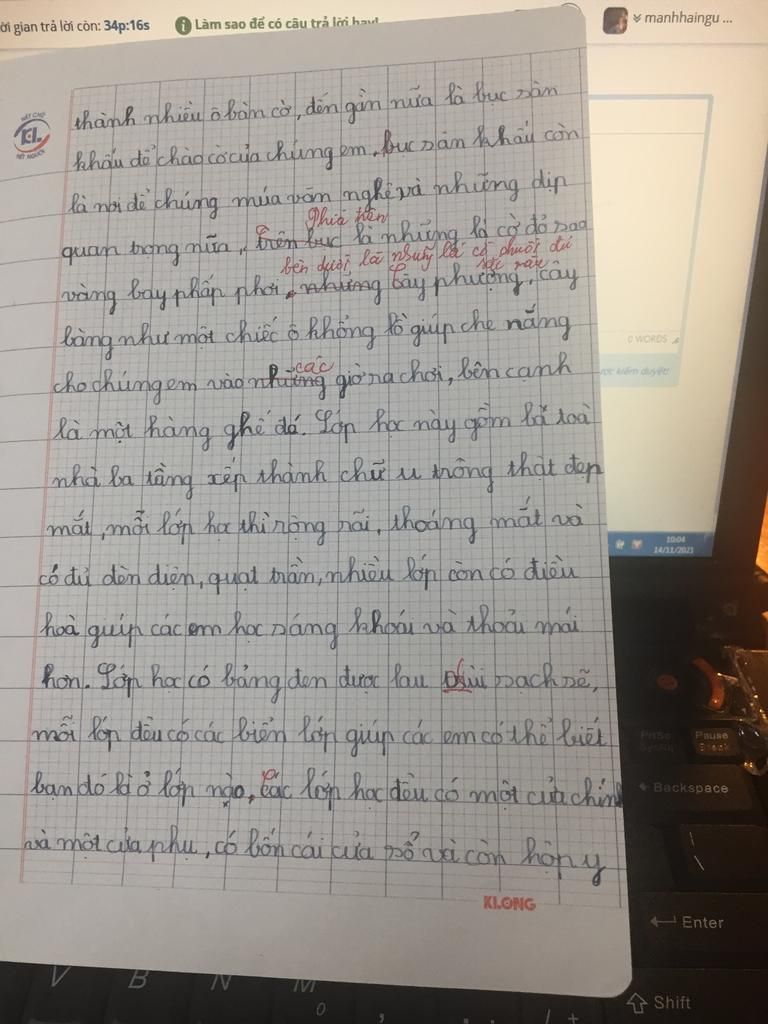 ời gian trả lời còn: 34p:16s
Làm sao để có câu trả lời hay!
manhhaingu ...
thành nhiều ô bàn cờ, đến gần nữa là bục sân
khấu để chào cờ của chúng em, bục sân khấu còn
là nơi để chúng múa văn nghệ và những dịp
Phía trên
quan trọng nữa, trên bục là những lá cờ đỏ sao
bên dưới là những lá cờ đuôi đủ
sắc màu
vàng bay phấp phới, những cây phượng, cây
bàng như một chiếc ô khổng lồ giúp che nắng
các
cho chúng em vào những giờ na chơi, bên cạnh
là một hàng ghế đá. Lớp học này gồm bă toà
nhà ba tầng xếp thành chữ u trông thật đẹp
mắt, mỗi lớp học thì rộng rãi, thoáng mát và
có đủ đèn điện, quạt trần, nhiều lớp còn có điều
hoà guíp các em học sáng khoái và thoải mái
hơn. Lớp học có bảng đen được lau chùi sạch sẽ,
mỗi lớp đều có các biển lớp giúp các em có thể biết
bạn đó là ở lớp nào, Các lớp học đều có một cửa chính
và một cửa phụ, có bốn cái cửa sổ và còn hộp y
KLONG
KL
NÉT CHỮ
NẾT NGƯỜI
0 WORDS
ợc kiểm duyệt!
10:04
14/11/2021
PrtSc
SysRq
Pause
Break
Backspace
\
Enter
Shift
V
B
N
M
0